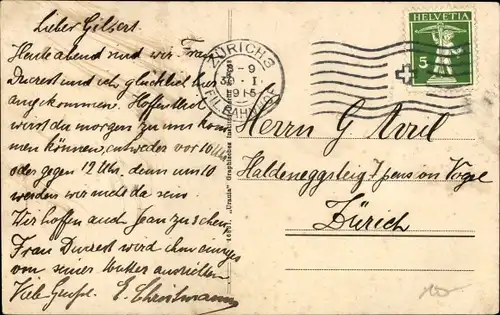 Lieber Gilbert.
Heute abend sind wir, Frau
Ducrest und ich, glücklich hier
angekommen. Hoffentlich
wirst du morgen zu uns kom
men können, entweder vor 10 Uhr
oder gegen 12 Uhr, denn um 10
werden wir nicht da sein
Wir hoffen auch Jean zu sehen
Frau Ducrest wird ihm einiges
von seiner Mutter ausrichten
Viele Grüsse. E. Christmann
ZÜRICH 3
30. I.
1915
FIL. BAHNHOF
HELVETIA
5
"Urania" Graphisches
Herrn G. Avril
Haldeneggsteig 7 pension Vogel
Zürich